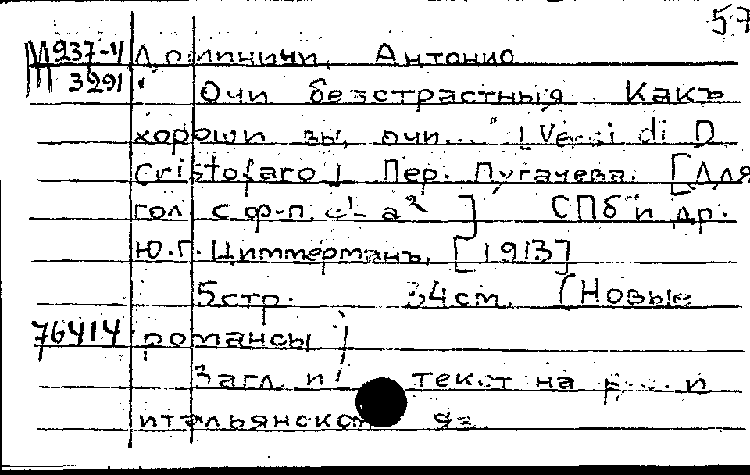 57
М 237-4 Антонио
М 3291 "Очи безстрастныя Какъ
хороши вы, очи..." [Versi di D
Cristofaro] Пер. Пугачева. [Для
гол с ф-п. c¹- a²] СПб и др.
Ю.Г. Циммерманъ, [1913]
5 стр. 34 см. (Новые
76414 романсы)
Загл. и текст на и
итальянском яз